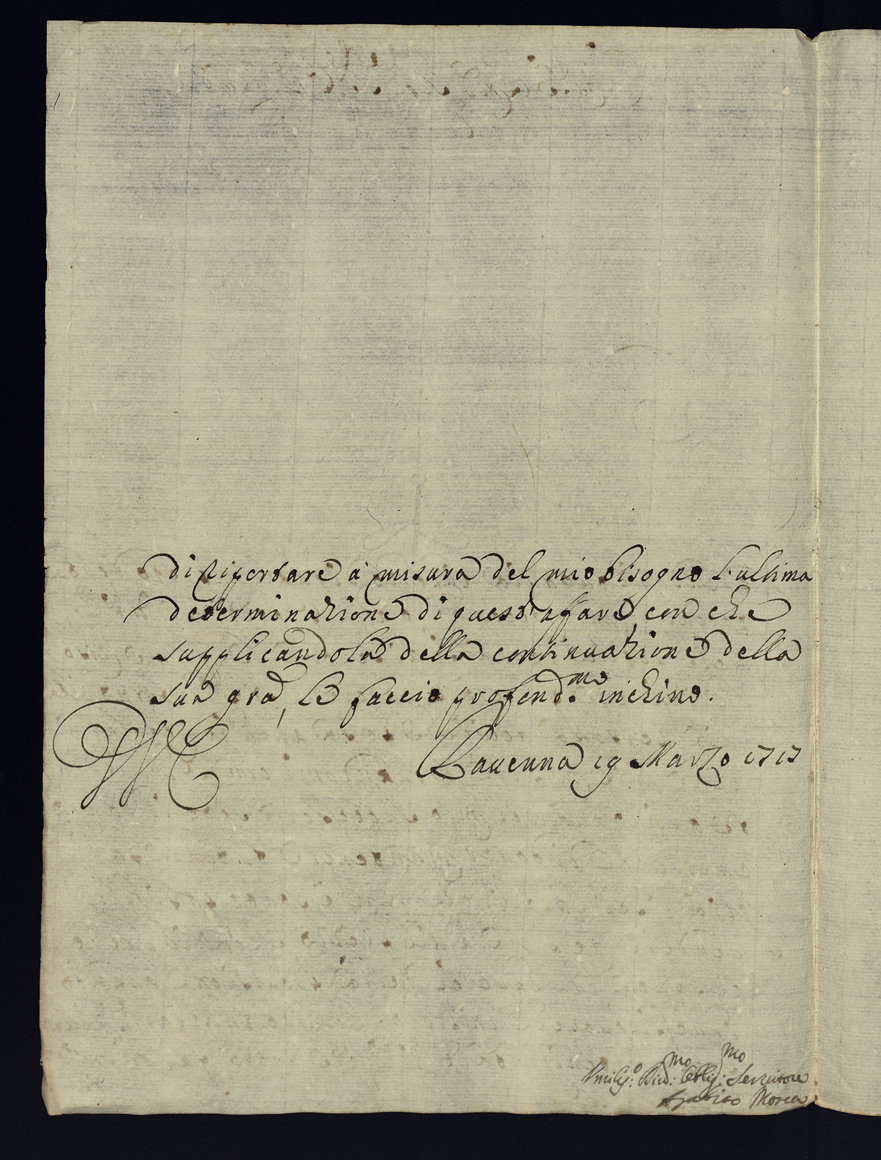 di riportare à misura del mio bisogno l'ultima
determinazione di questo affare, con che
supplicandola della continuazione della
sua gra, le faccio profond.mo inchino.
Ravenna 19 Marzo 1717
Umilis.o Div.mo Oblig.mo Servitore
Morea